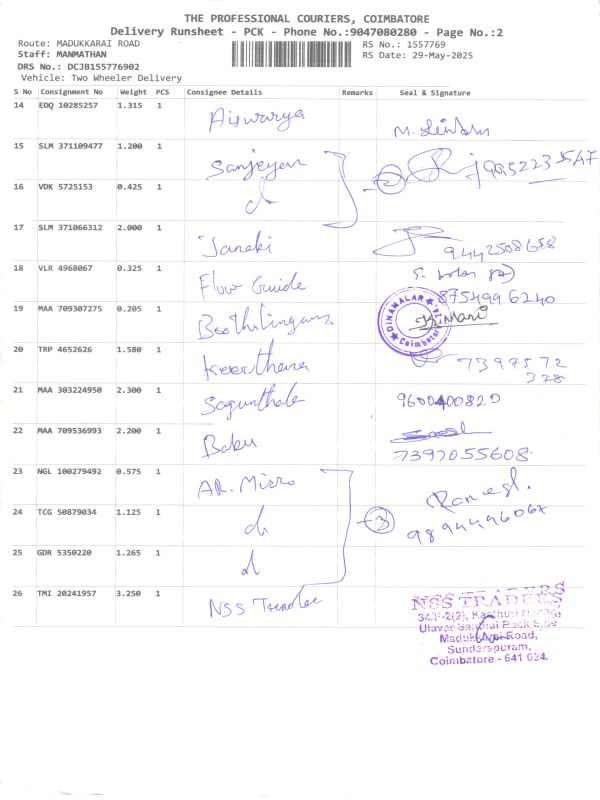 THE PROFESSIONAL COURIERS, COIMBATORE
Delivery Runsheet - PCK - Phone No.:9047080280 - Page No.:2
Route: MADUKKARAI ROAD
RS No.: 1557769
Staff: MANMATHAN
RS Date: 29-May-2025
DRS No.: DCJB155776902
Vehicle: Two Wheeler Delivery
S No Consignment No Weight PCS Consignee Details Remarks Seal & Signature
14 EDQ 10285257 1.315 1 Aiswarya
15 SLM 371109477 1.200 1 Sanjeyan
16 VDK 5725153 0.425 1
17 SLM 371066312 2.000 1 Janaki 9442508658
18 VLR 4968067 0.325 1 Flow Guide 8754996240
19 MAA 709307275 0.205 1 DINAMALAR Coimbatore
20 TRP 4652626 1.580 1 Keerthana 7397572
378
21 MAA 303224950 2.300 1 Sagunthale 9600400820
22 MAA 709536993 2.200 1 Babu 7397055608
23 NGL 100279492 0.575 1 AR. Micro
24 TCG 50879034 1.125 1
25 GDR 5350220 1.265 1
26 TMI 20241957 3.250 1 NSS Traders
NSS TRADERS
Madukkarai Road,
Sundarapuram,
Coimbatore - 641 024.